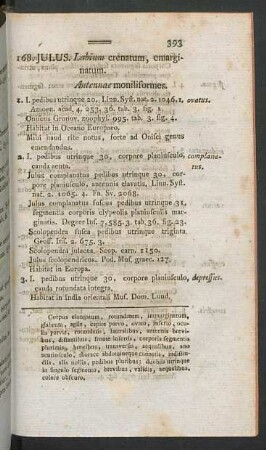 393
168. JULUS. Labium crenatum, emargi-
natum.
Antennae moniliformes.
1. I. pedibus utrinque 20. Linn. Syst. nat. 2. 1046. 1. ovatus.
Amoen. acad. 4. 253. 36. tab. 3. fig. 1.
Oniscus Gronov. zoophyl. 995. tab. 3. fig. 4.
Habitat in Oceano Europaeo.
Mihi haud rite notus, forte ad Onisci genus
amendandus.
2. I. pedibus utrinque 30, corpore planiusculo, complana-
cauda acuta. tus.
Julus complanatus pedibus utrinque 30, cor-
pore planiusculo, antennis clavatis, Linn. Syst.
nat. 2. 1065. 4. Fn. Sv. 2068.
Julus complanatus fuscus pedibus utrinque 31,
segmentis corporis clypeolis planiusculis mar-
ginatis. Degeer Ins. 7. 585. 3. tab. 36. fig. 23.
Scolopendra fusca pedibus utrinque triginta.
Geoff. Ins. 2. 675. 3.
Scolopendra julacea. Scop. carn. 1150.
Julus scolopendricus. Pod. Mus. graec. 127.
Habitat in Europa.
3. I. pedibus utrinque 30. corpore planiusculo, depressus.
cauda rotundata integra.
Habitat in India orientali Mus. Dom. Lund.
Corpus elongatum, rotundatum, immarginatum,
glabrum, agile, capite parvo, ovato, inserto, ocu-
lis parvis, rotundatis, lateralibus, antennis brevi-
bus, distantibus, fronte insertis, corporis segmentis
plurimis, brevibus, transversis, aequalibus, ano